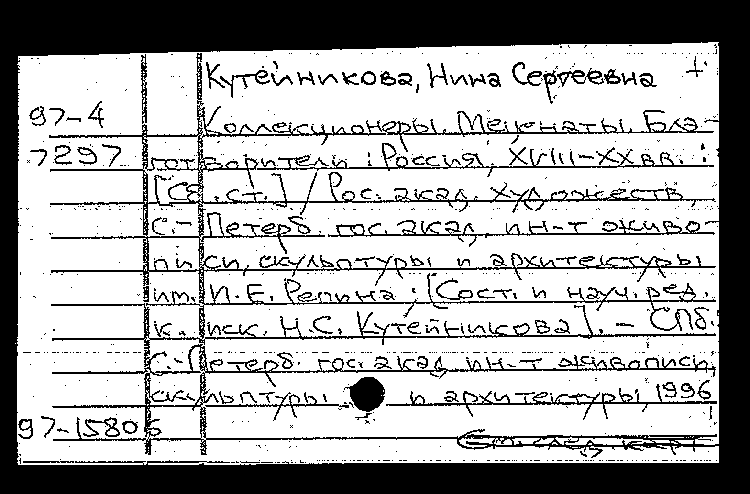 Кутейникова, Нина Сергеевна +
97-4 Коллекционеры. Меценаты. Бла-
7297 готворители : Россия, XVIII-XX вв. :
[Сб. ст.] / Рос. акад. художеств,
С.-Петерб. гос. акад. ин-т живо-
писи, скульптуры и архитектуры
им. И.Е. Репина ; [Сост. и науч. ред.
к. иск. Н.С. Кутейникова]. - СПб. :
С.-Петерб. гос. акад. ин-т живописи,
скульптуры и архитектуры, 1996
97-15806
См. след. карт